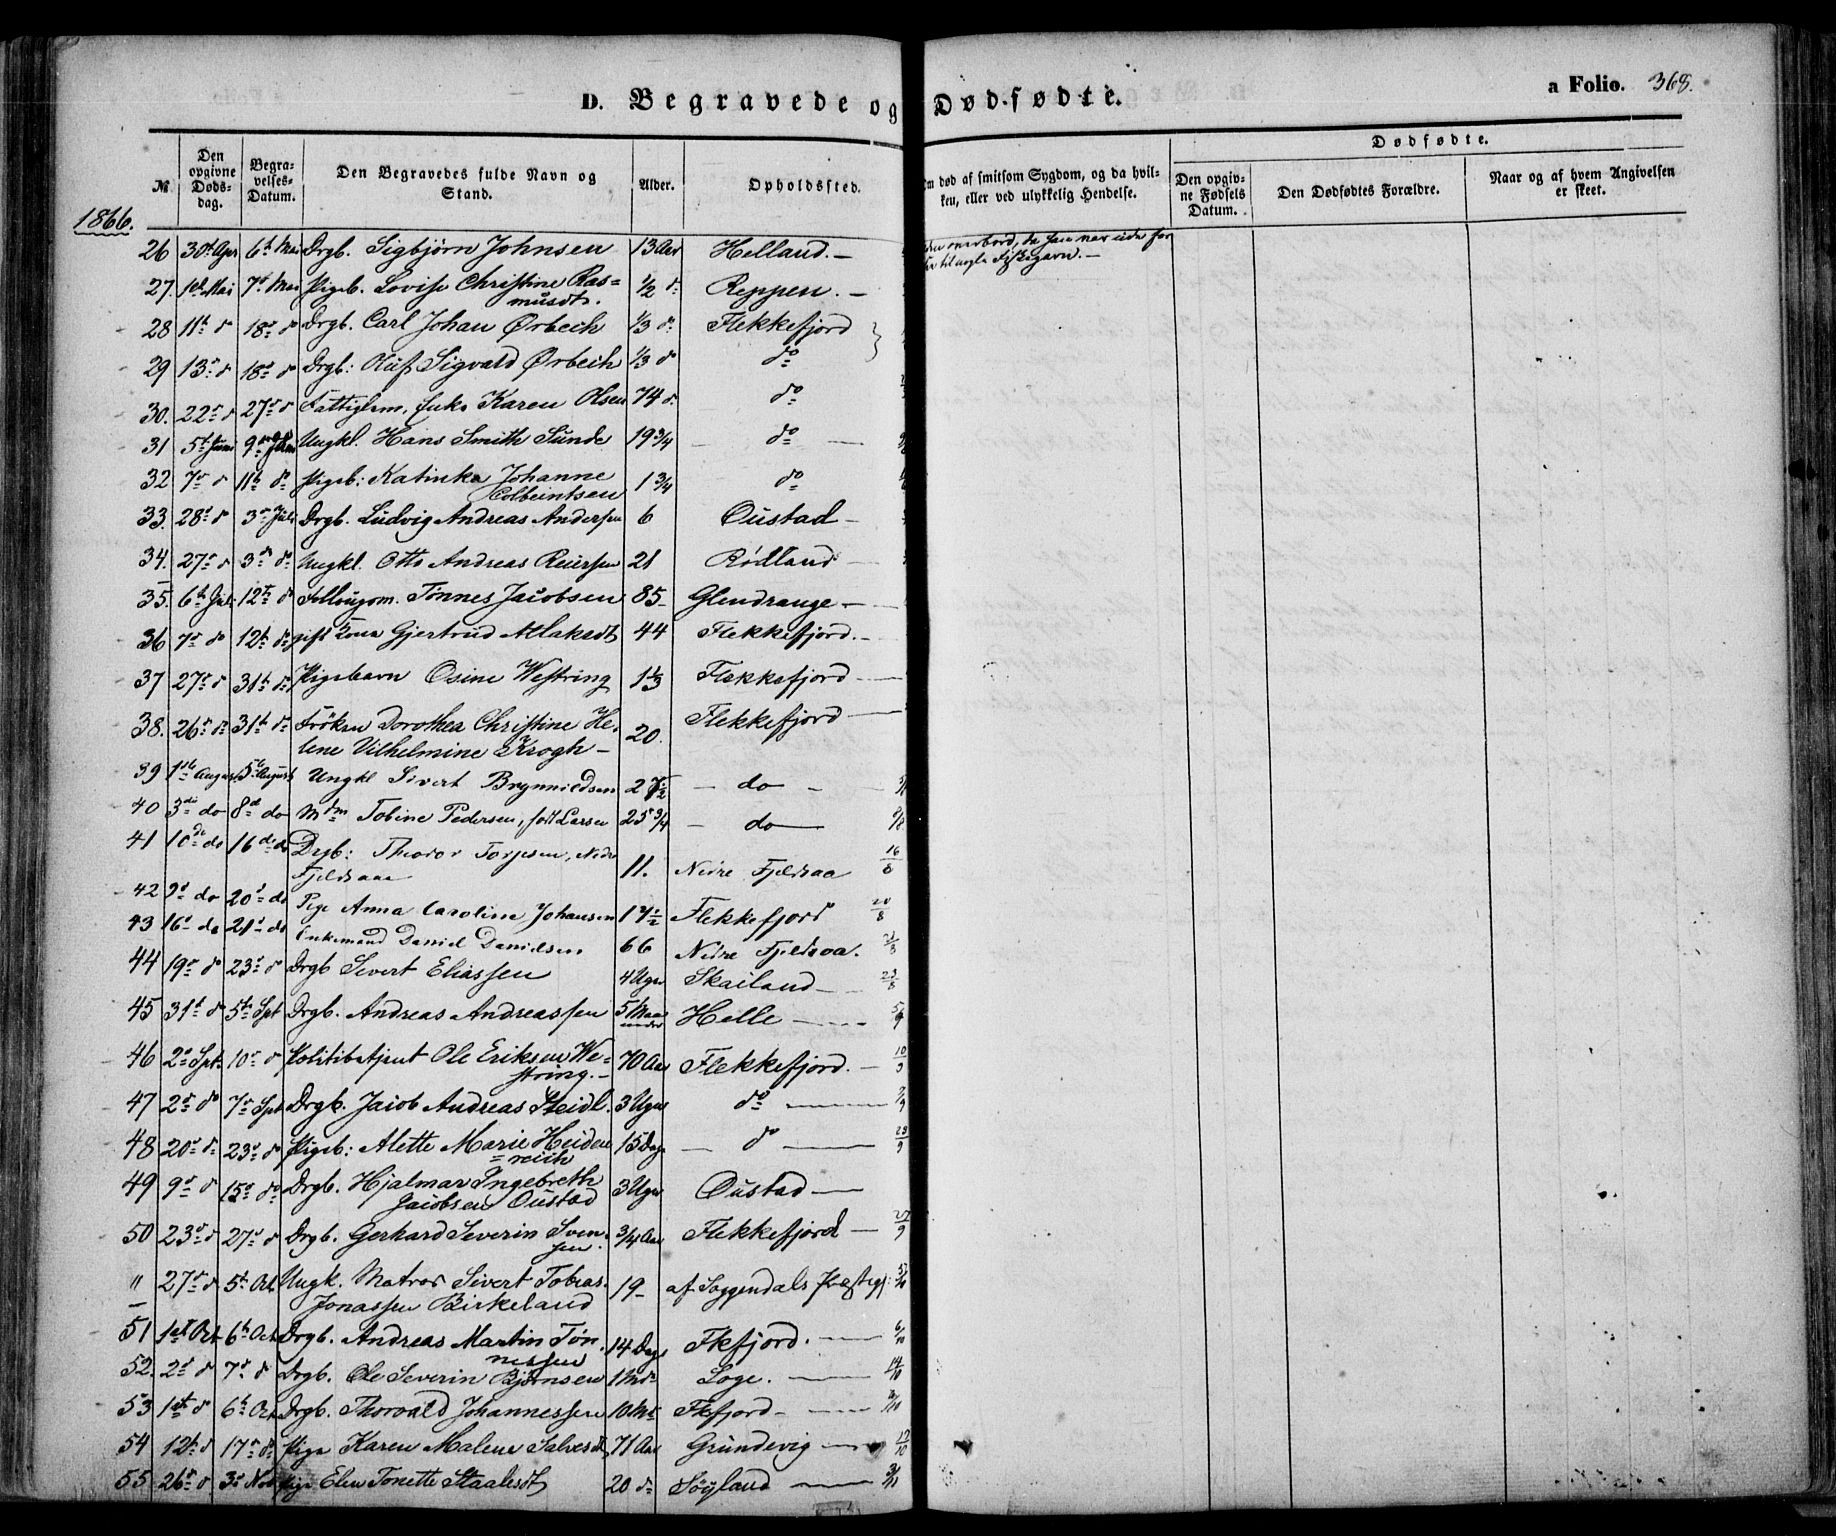 D. Begravede og Dødfødte.
a Folio. 368.
Dødfødte.
№
Den opgivne Døds-dag.
Begra-velses-Datum.
Den Begravedes fulde Navn og Stand.
Alder.
Opholdssted.
Om død af smitsom Sygdom, og da hvil-ken, eller ved ulykkelig Hendelse.
Den opgiv-ne Fødsels Datum.
Den Dødfødtes Forældre.
Naar og af hvem Angivelsen er skeet.
1866.
26 30te Apr 6te Mai Drgb. Sigbjørn Johnsen 13 Aar Helland. — overbord, da han var ude for
Fiskegarn. —
27. 1ste Mai 7de Mai Pigeb. Lovise Christine Ras=
musdt. ½ do Reppen. —
28 11te do 18de do Drgb. Carl Johan Ørbech ⅓ do Flekkefjord
29 13de do 18de do Drgb: Oluf Sigvald Ørbech ⅓ do do
30. 22de do 27de do Fattiglem, Enke Karen Olsen 74 do do
31 5te Juni 9de Juni Ungkl. Hans Smith Sunde 19¾ — do —
32 7de do 11te do Pigeb: Katinka Johanne
Colbeintsen 1¾ do
33. 28de do 3de Juli Drgb. Ludvig Andreas Andersen 6 Oustad —
34. 27de do 3de do Ungkl. Otto Andreas Reiersen 21 Rødland —
35. 6te Juli 12te do Føllougsm. Tønnes Jacobsen 85 — Glendrange —
36 7de do 12te do gift Kone Gjertrud Atlaksdt 44 Flekkefjord. —
37 27de do 31te do Pigebarn Osine Westring 1⅓ Flekkefjord —
38. 26de do 31te do Frøken Dorothea Christine He-
lene Vilhelmine Krogh — 20. Flekkefjord —
39 1ste August 5te August Ungkl Sivert Brynnildsen 27½ — do —
40 3die do 8de do Mdm Tobine Pedersen, født Larsen 25¾ — do —
41 10de do 16de do Drgb: Theodor Torjesen, Nedre
Fjeldsaae 11. Nedre Fjeldsaa 16/8
42 9de do 20de do Pige Anna Caroline Johansen 17½ Flekkefjord 20/8
43 16de do 21de do Enkemand Daniel Danielsen 66 Nedre Fjeldsaa. 21/8
44 19de do 23de do Drgb Sivert Eliassen 4 Uger Skailand — 23/8
45 31te do 5te Spt Drgb. Andreas Andreassen 5 Maa
neder Helle — 5/9
46 2de Spt 10de do Politibetjent Ole Eriksen We=
string. — 70 Aar Flekkefjord. — 10/9
47 2de do 7de Spt Drgb. Jacob Andreas Steidl. 3 Uger do — 7/9
48 20de do 23de do Pigeb: Alette Marie Heiden
=reich 15 Dage — do — 23/9
49 9de do 15de do Drgb. Hjalmar Ingebreth
Jacobsen Oustad 3 Uger Oustad —
50 23de do 27de do Drgb. Gerhard Severin Sven-
sen. ¾ Aar Flekkefjord — 27/9
" 27de do 5te Oct Ungk. Matros Sivert Tobias
Jonassen Birkeland 19 — af Soggendals Præstegj: 5/10
51 1ste Oct 6te Oct Drgb. Andreas Martin Tøn-
nessen 14 Dage Fkfjord. — 6/10
52. 2de do 7de do Drgb. Ole Severin Bjørnsen 1 Md Loge. — 14/10
53 1ste do 6te Oct Drgb. Thorvald Johannessen 10 Mdr Fkfjord —
54 12te do 17de do Pige Karen Malene Salvesdt, 71 Aar Grundevig — 17/10
55 26de do 3die Nov Pige Elen Tonette Staalesdt 20 do Søyland — 3/11